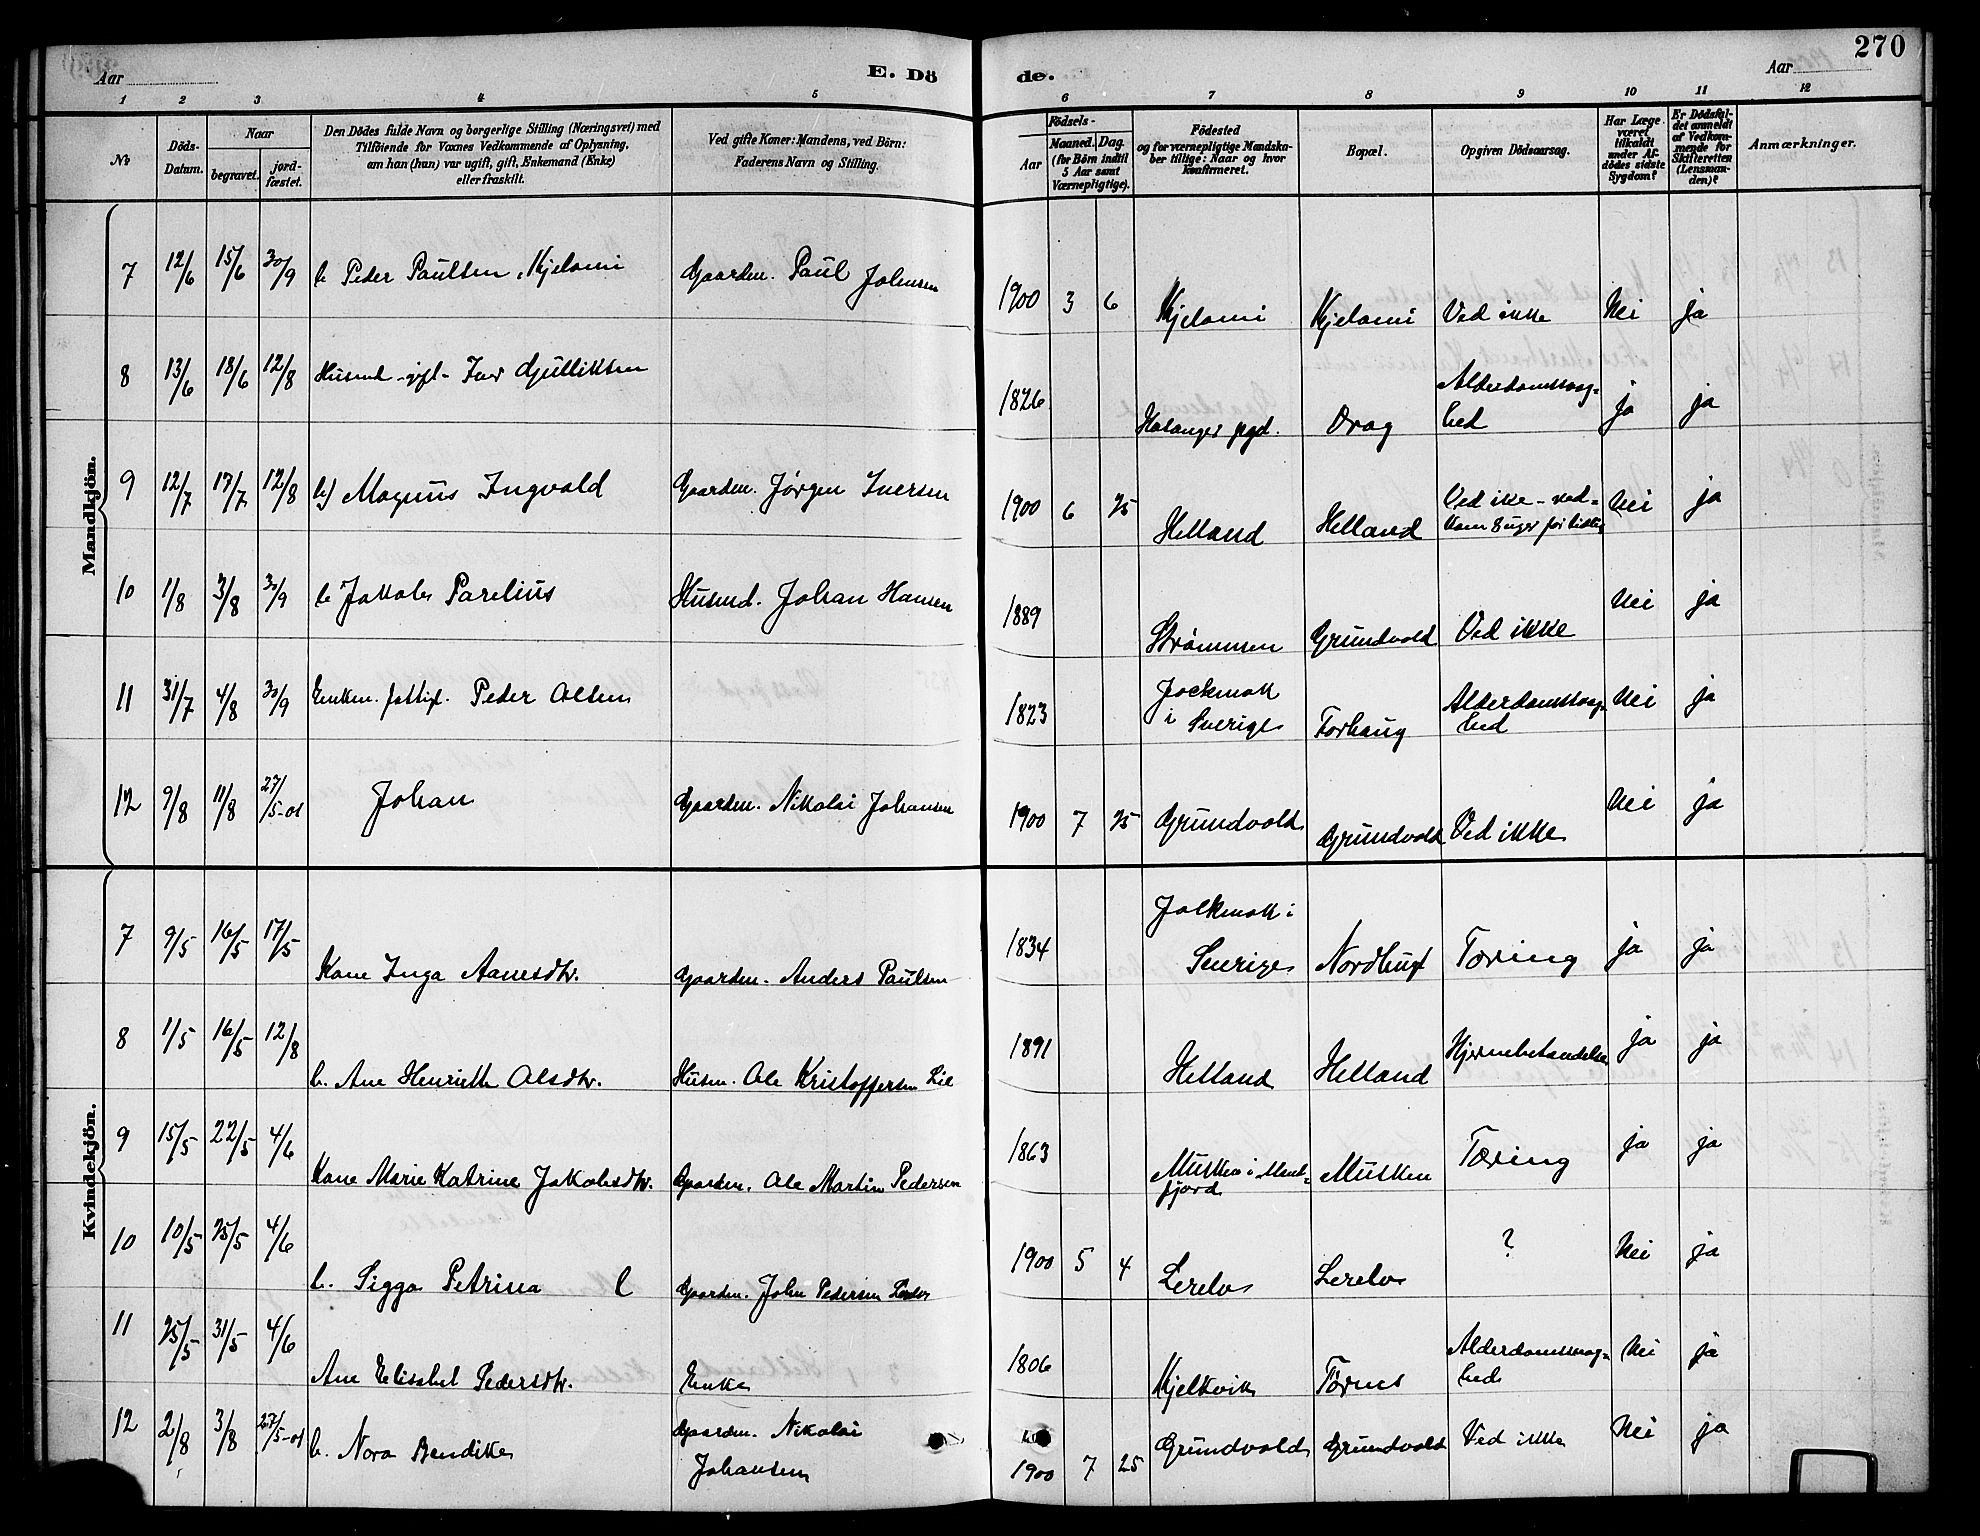 270
Aar
E. Dö
de.
Aar
1 2 3 4 5 6 7 8 9 10 11 12
No
Döds-Datum.
Naar
begravet.
jord-fæstet.
Den Dödes fulde Navn og borgerlige Stilling (Næringsvei) med
Tilföiende for Voxnes Vedkommende af Oplysning,
om han (hun) var ugift, gift, Enkemand (Enke)
eller fraskilt.
Ved gifte Koner: Mandens, ved Börn:
Faderens Navn og Stilling.
Födsels-
Aar
Maaned.
Dag.
(for Börn indtil
5 Aar samt
Værnepligtige).
Födested
og for værnepligtige Mandska-
ber tillige: Naar og hvor
konfirmeret.
Bopæl.
Opgiven Dödsaarsag.
Har Læge
været
tilkaldt
under Af-
dödes sidste
Sygdom?
Er Dödsfal-
det anmeldt
af Vedkom-
mende for
Skifteretten
(Lensman-
den)?
Anmærkninger.
Mandkjön.
7 12/6 15/6 30/9 b Peder Paulsen, Kjelomi Gaardm. Paul Johnsen 1900 3 6 Kjelomi Kjelomi Ved ikke Nei ja
8 13/6 18/6 12/8 Husmd - gft - Iver Gulliksen 1826 pgd. Drag Alderdomssvag=
hed ja ja
9 12/7 17/7 12/8 b) Magnus Ingvald Gaardm. Jørgen Iversen 1900 6 25 Helland Helland Ved ikke - ned=
kom 8 uger for tidlig Nei ja
10 1/8 3/8 30/9 b Jakob Parelius Husmd. Johan Hansen 1889 Strømmen Grundvold Ved ikke Nei ja
11 31/7 4/8 30/9 Enkem. fattigl. Peder Olsen 1823 Jockmok
i Sverige Forhaug Alderdomssvag=
hed Nei ja
12 9/8 11/8 27/5-01 Johan Gaardm. Nikolai Johansen 1900 7 25 Grundvold Grundvold Ved ikke Nei ja
Kvindekjön.
7 9/5 16/5 17/5 Kone Inga Aanesdtr. Gaardm. Anders Paulsen 1834 Jockmok i
Sverige Nordbugt Tæring ja ja
8 1/5 16/5 12/8 b. Ane Henriette Olsdtr. Husm. Ole Kristoffersen Lie 1891 Helland Helland Hjernebetændelse ja ja
9 15/5 22/5 4/6 Kone Marie Katrine Jakobsdtr. Gaardm. Ole Martin Pedersen 1863 Musken i
fjord Musken Tæring ja ja
10 10/5 25/5 4/6 b. Sigga Petrina Gaardm. John Pedersen 1900 5 4 Lerelv Lerelv ? Nei ja
11 25/5 31/5 4/6 Ane Elisabet Pedersdtr. Enke 1806 Kjelkvik Tørnes Alderdomssvag=
hed Nei ja
12 2/8 3/8 27/5-01 b. Nora Bendikke Gaardm. Nikolai
Johansen 1900 7 25 Grundvold Grundvold Ved ikke Nei ja